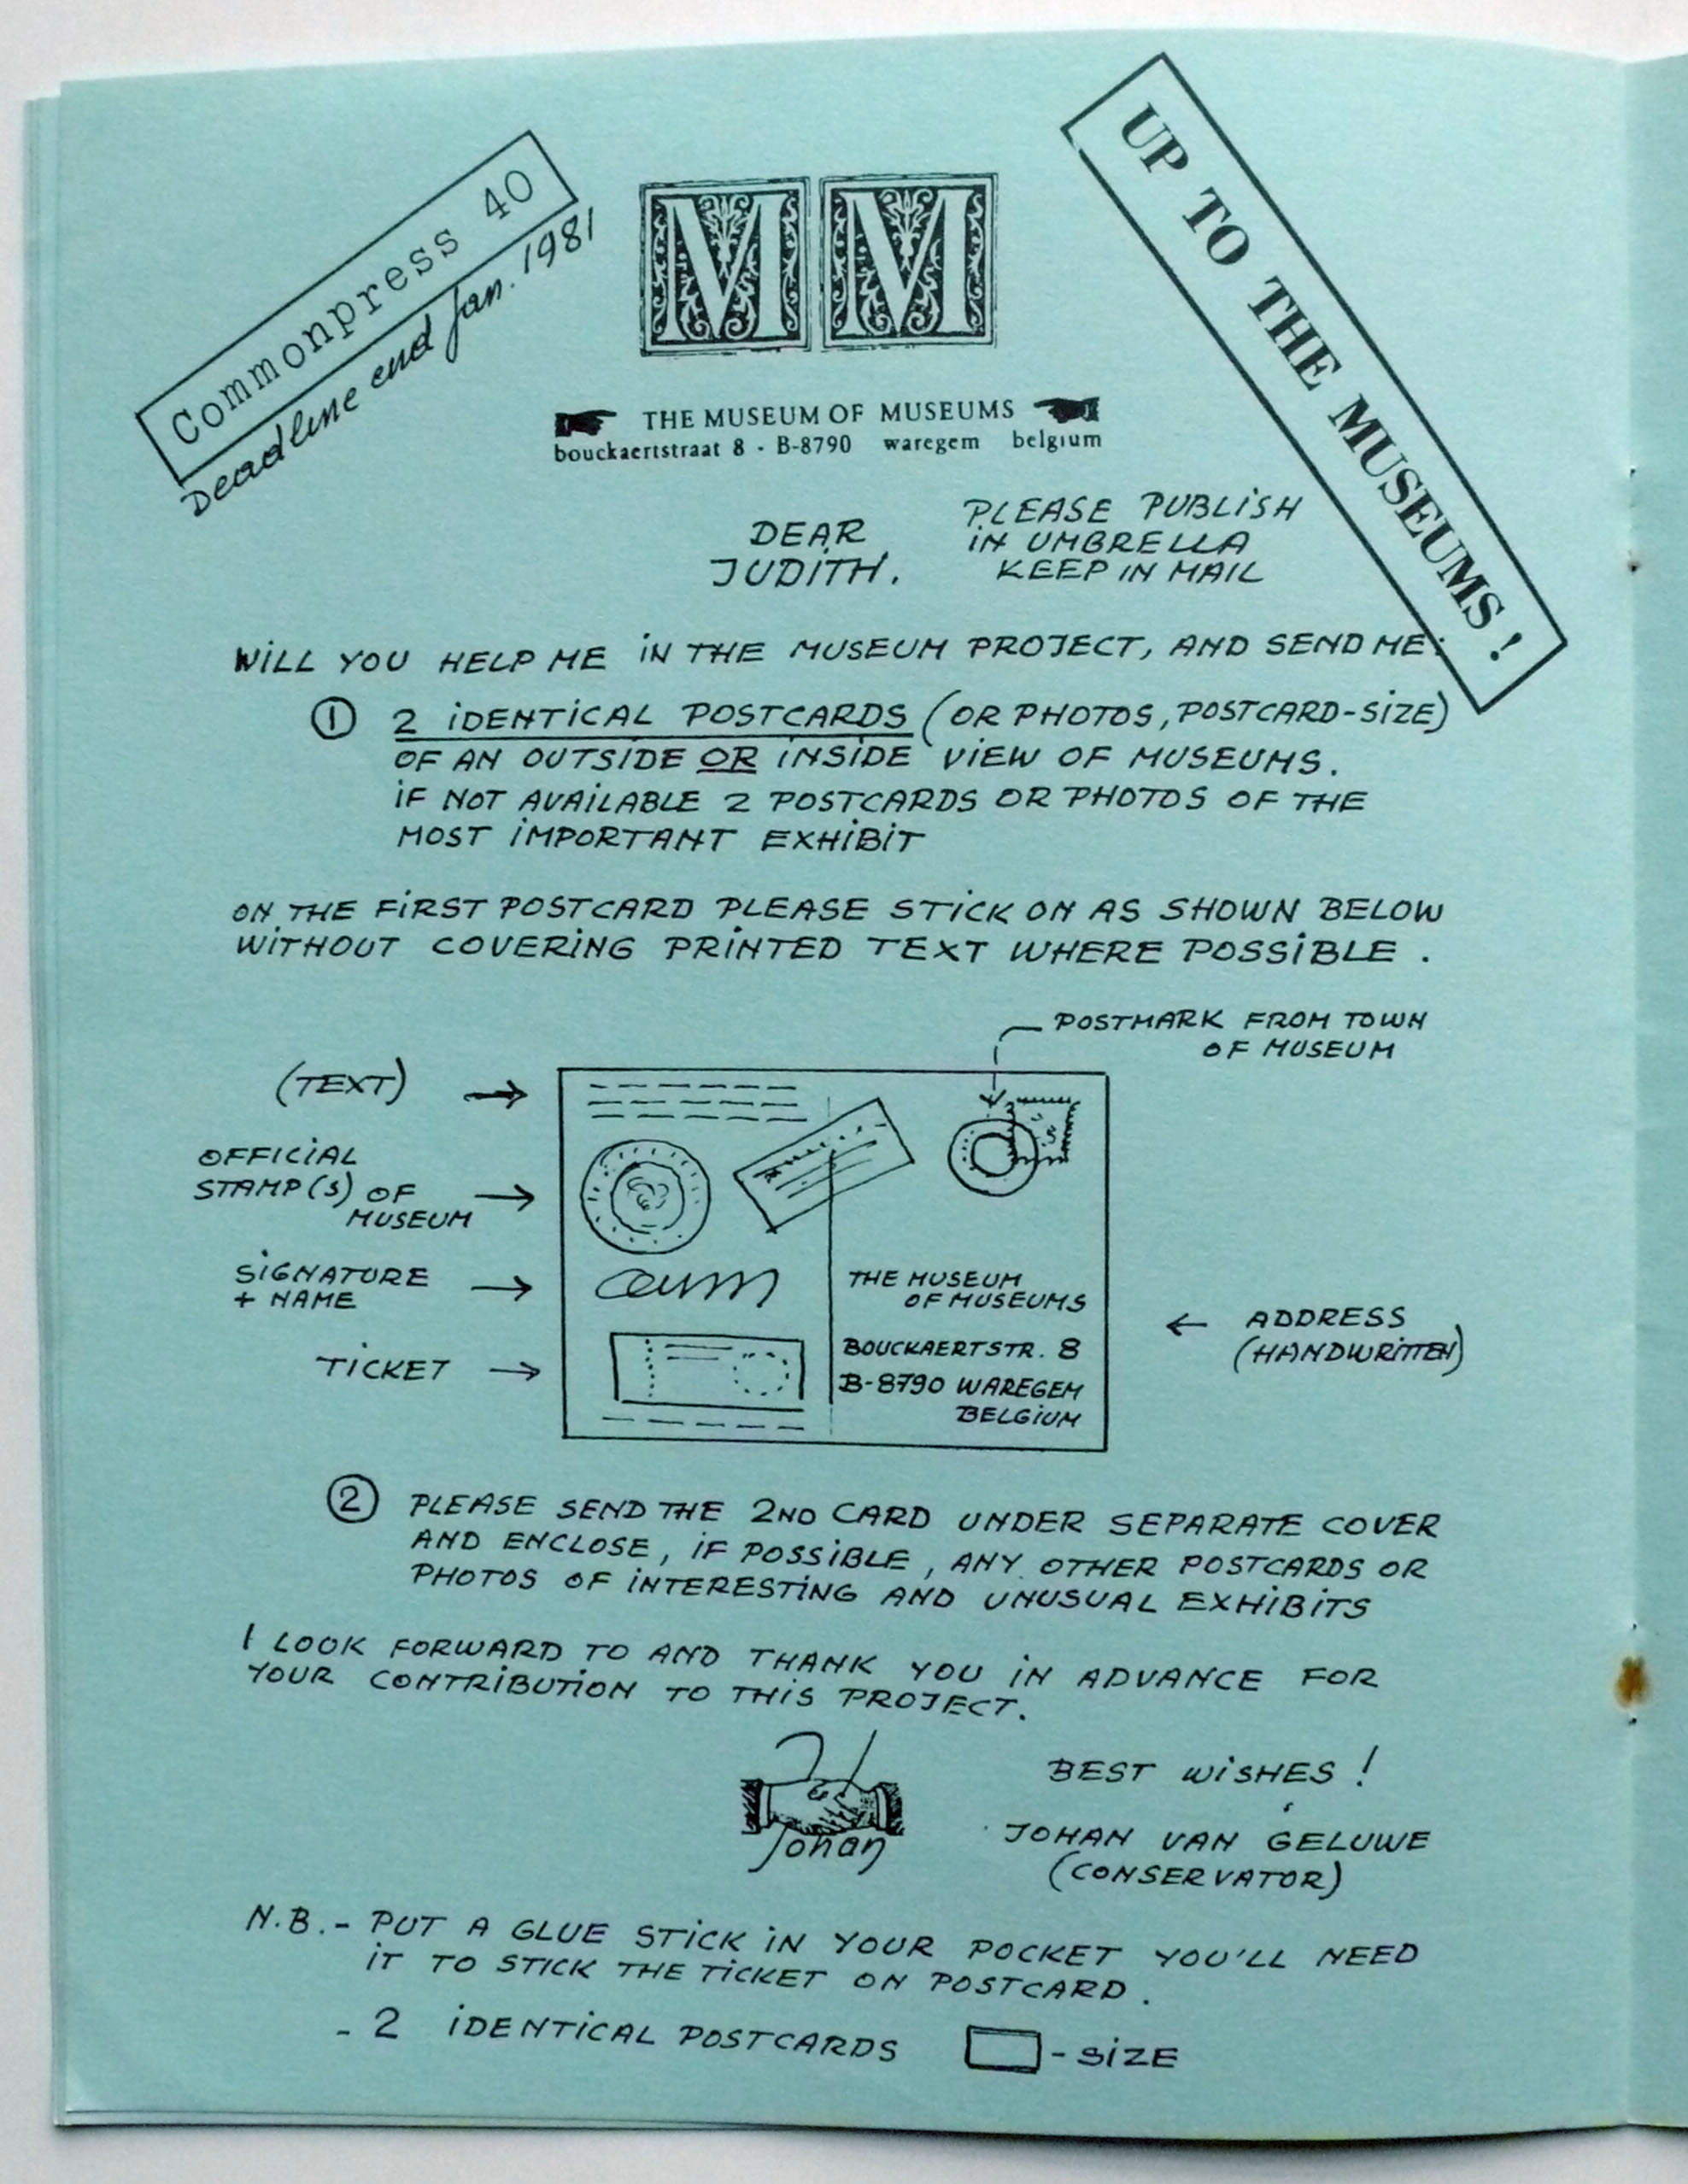 Commonpress 40
Deadline end Jan. 1981
UP TO THE MUSEUMS!
M M
THE MUSEUM OF MUSEUMS
bouckaertstraat 8 - B-8790 waregem belgium
DEAR
JUDITH.
PLEASE PUBLISH
IN UMBRELLA
KEEP IN MAIL
WILL YOU HELP ME IN THE MUSEUM PROJECT, AND SEND ME:
1 2 IDENTICAL POSTCARDS (OR PHOTOS, POSTCARD-SIZE)
OF AN OUTSIDE OR INSIDE VIEW OF MUSEUMS.
IF NOT AVAILABLE 2 POSTCARDS OR PHOTOS OF THE
MOST IMPORTANT EXHIBIT
ON THE FIRST POSTCARD PLEASE STICK ON AS SHOWN BELOW
WITHOUT COVERING PRINTED TEXT WHERE POSSIBLE.
POSTMARK FROM TOWN
OF MUSEUM
(TEXT)
OFFICIAL
STAMP(S) OF
MUSEUM
SIGNATURE
+ NAME
TICKET
THE MUSEUM
OF MUSEUMS
BOUCKAERTSTR. 8
B-8790 WAREGEM
BELGIUM
ADDRESS
(HANDWRITTEN)
2 PLEASE SEND THE 2ND CARD UNDER SEPARATE COVER
AND ENCLOSE, IF POSSIBLE, ANY OTHER POSTCARDS OR
PHOTOS OF INTERESTING AND UNUSUAL EXHIBITS
I LOOK FORWARD TO AND THANK YOU IN ADVANCE FOR
YOUR CONTRIBUTION TO THIS PROJECT.
Johan
BEST WISHES!
JOHAN VAN GELUWE
(CONSERVATOR)
N.B.- PUT A GLUE STICK IN YOUR POCKET YOU'LL NEED
IT TO STICK THE TICKET ON POSTCARD.
- 2 IDENTICAL POSTCARDS - SIZE